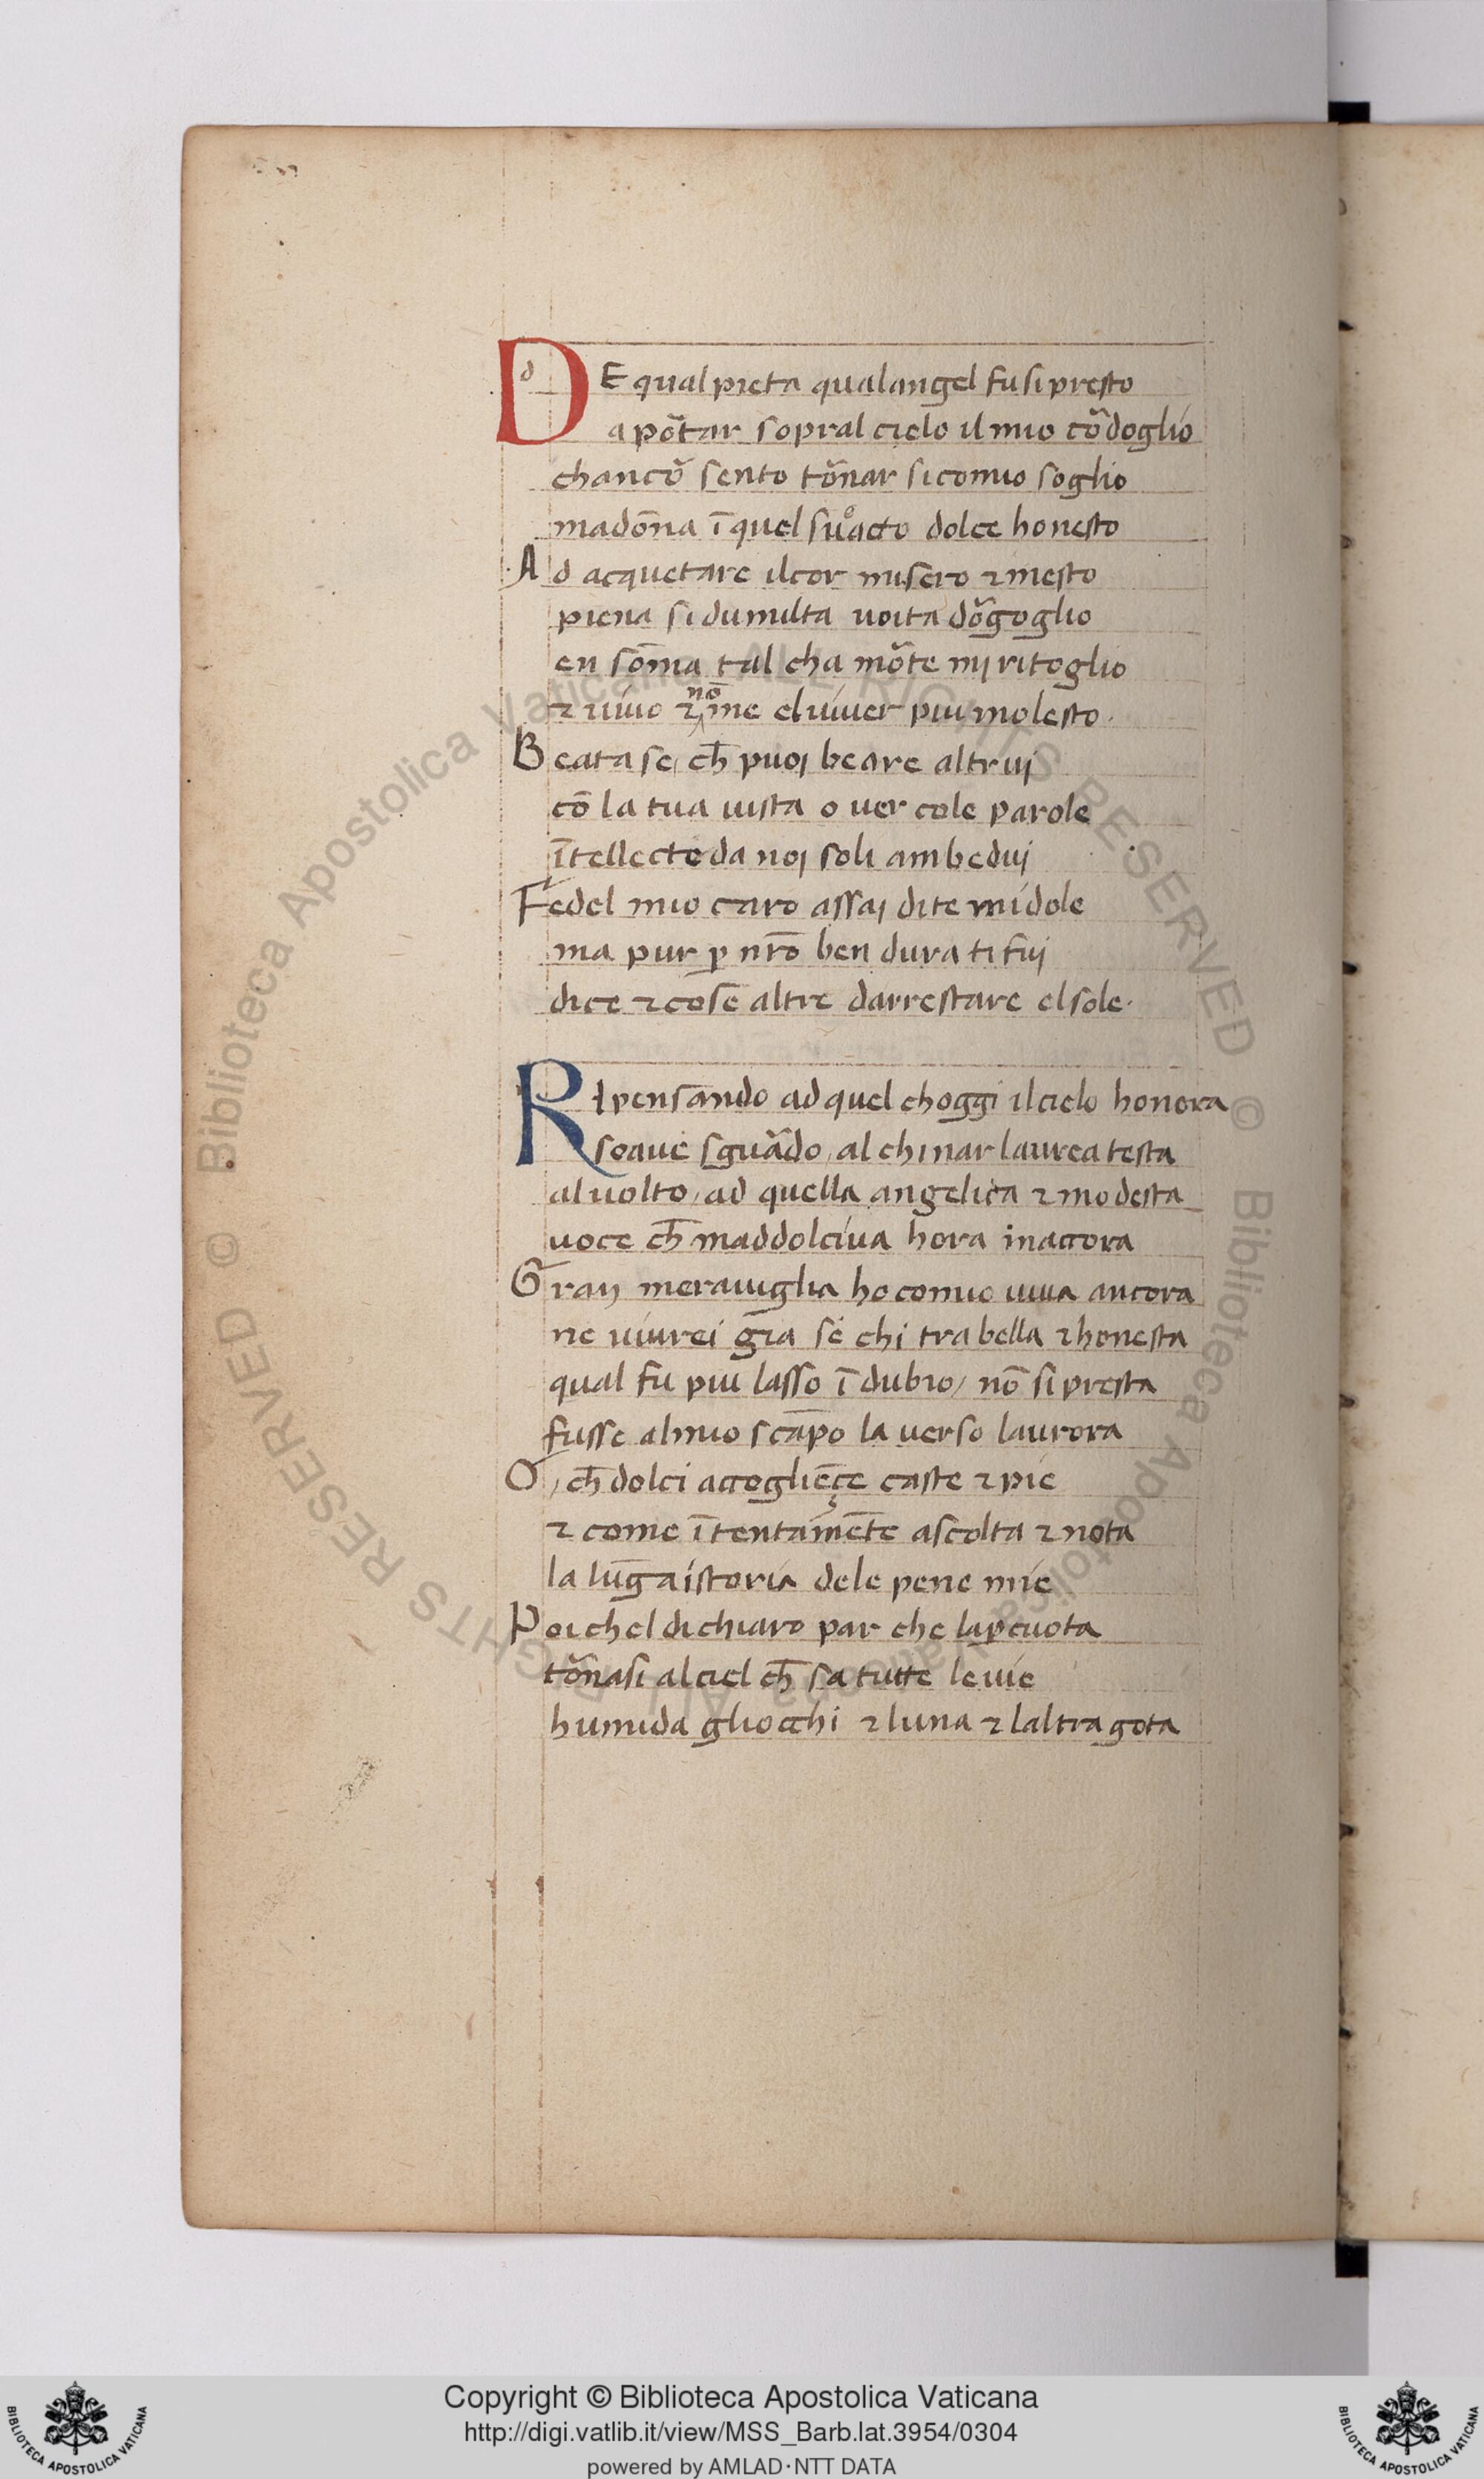 DE qual pieta qual angel fu si presto
a po᷑tar sopral cielo il mio co᷑doglio
chanco᷑ sento to᷑nar si comio soglio
madōna ī quel suo acto dolce honesto
Ad acquetare il cor misero ⁊ mesto
piena si dumilta voita do᷑goglio
en sōma tal cha mo᷑te mj ritoglio
⁊ uiuo ⁊ nō me el uiuer piu molesto.
Beata se, ch̄ puoj beare altruj
cō la tua uista o uer cole parole
ītellecte da noj soli ambeduj
Fedel mio caro assaj dite mi dole
ma pur ꝑ nr̄o ben dura ti fuj
dice ⁊ cose altre darrestare el sole.
RIpensando ad quel choggi il cielo honora
soaue sgua᷑do, al chinar laurea testa
al uolto, ad quella angelica ⁊ modesta
uoce ch̄ maddolciua hora inaccora
Gran merauiglia ho comio uiua ancora
ne uiurei gīa se chi tra bella ⁊ honesta
qual fu piu lasso ī dubio, nō si presta
fusse al mio scāpo la uerso laurora
O, ch̄ dolci accogliēçe caste ⁊ pie
⁊ come ītentamēte ascolta ⁊ nota
la lūga istoria dele pene mie
Poi chel di chiaro par che la ꝑcuota
to᷑nasi al ciel ch̄ sa tutte le uie
humida gliocchi ⁊ luna ⁊ laltra gota
Copyright © Biblioteca Apostolica Vaticana
http://digi.vatlib.it/view/MSS_Barb.lat.3954/0304
powered by AMLAD·NTT DATA
BIBLIOTECA APOSTOLICA VATICANA
BIBLIOTECA APOSTOLICA VATICANA
© Biblioteca Apostolica Vaticana ALL RIGHTS RESERVED
© Biblioteca Apostolica Vaticana ALL RIGHTS RESERVED